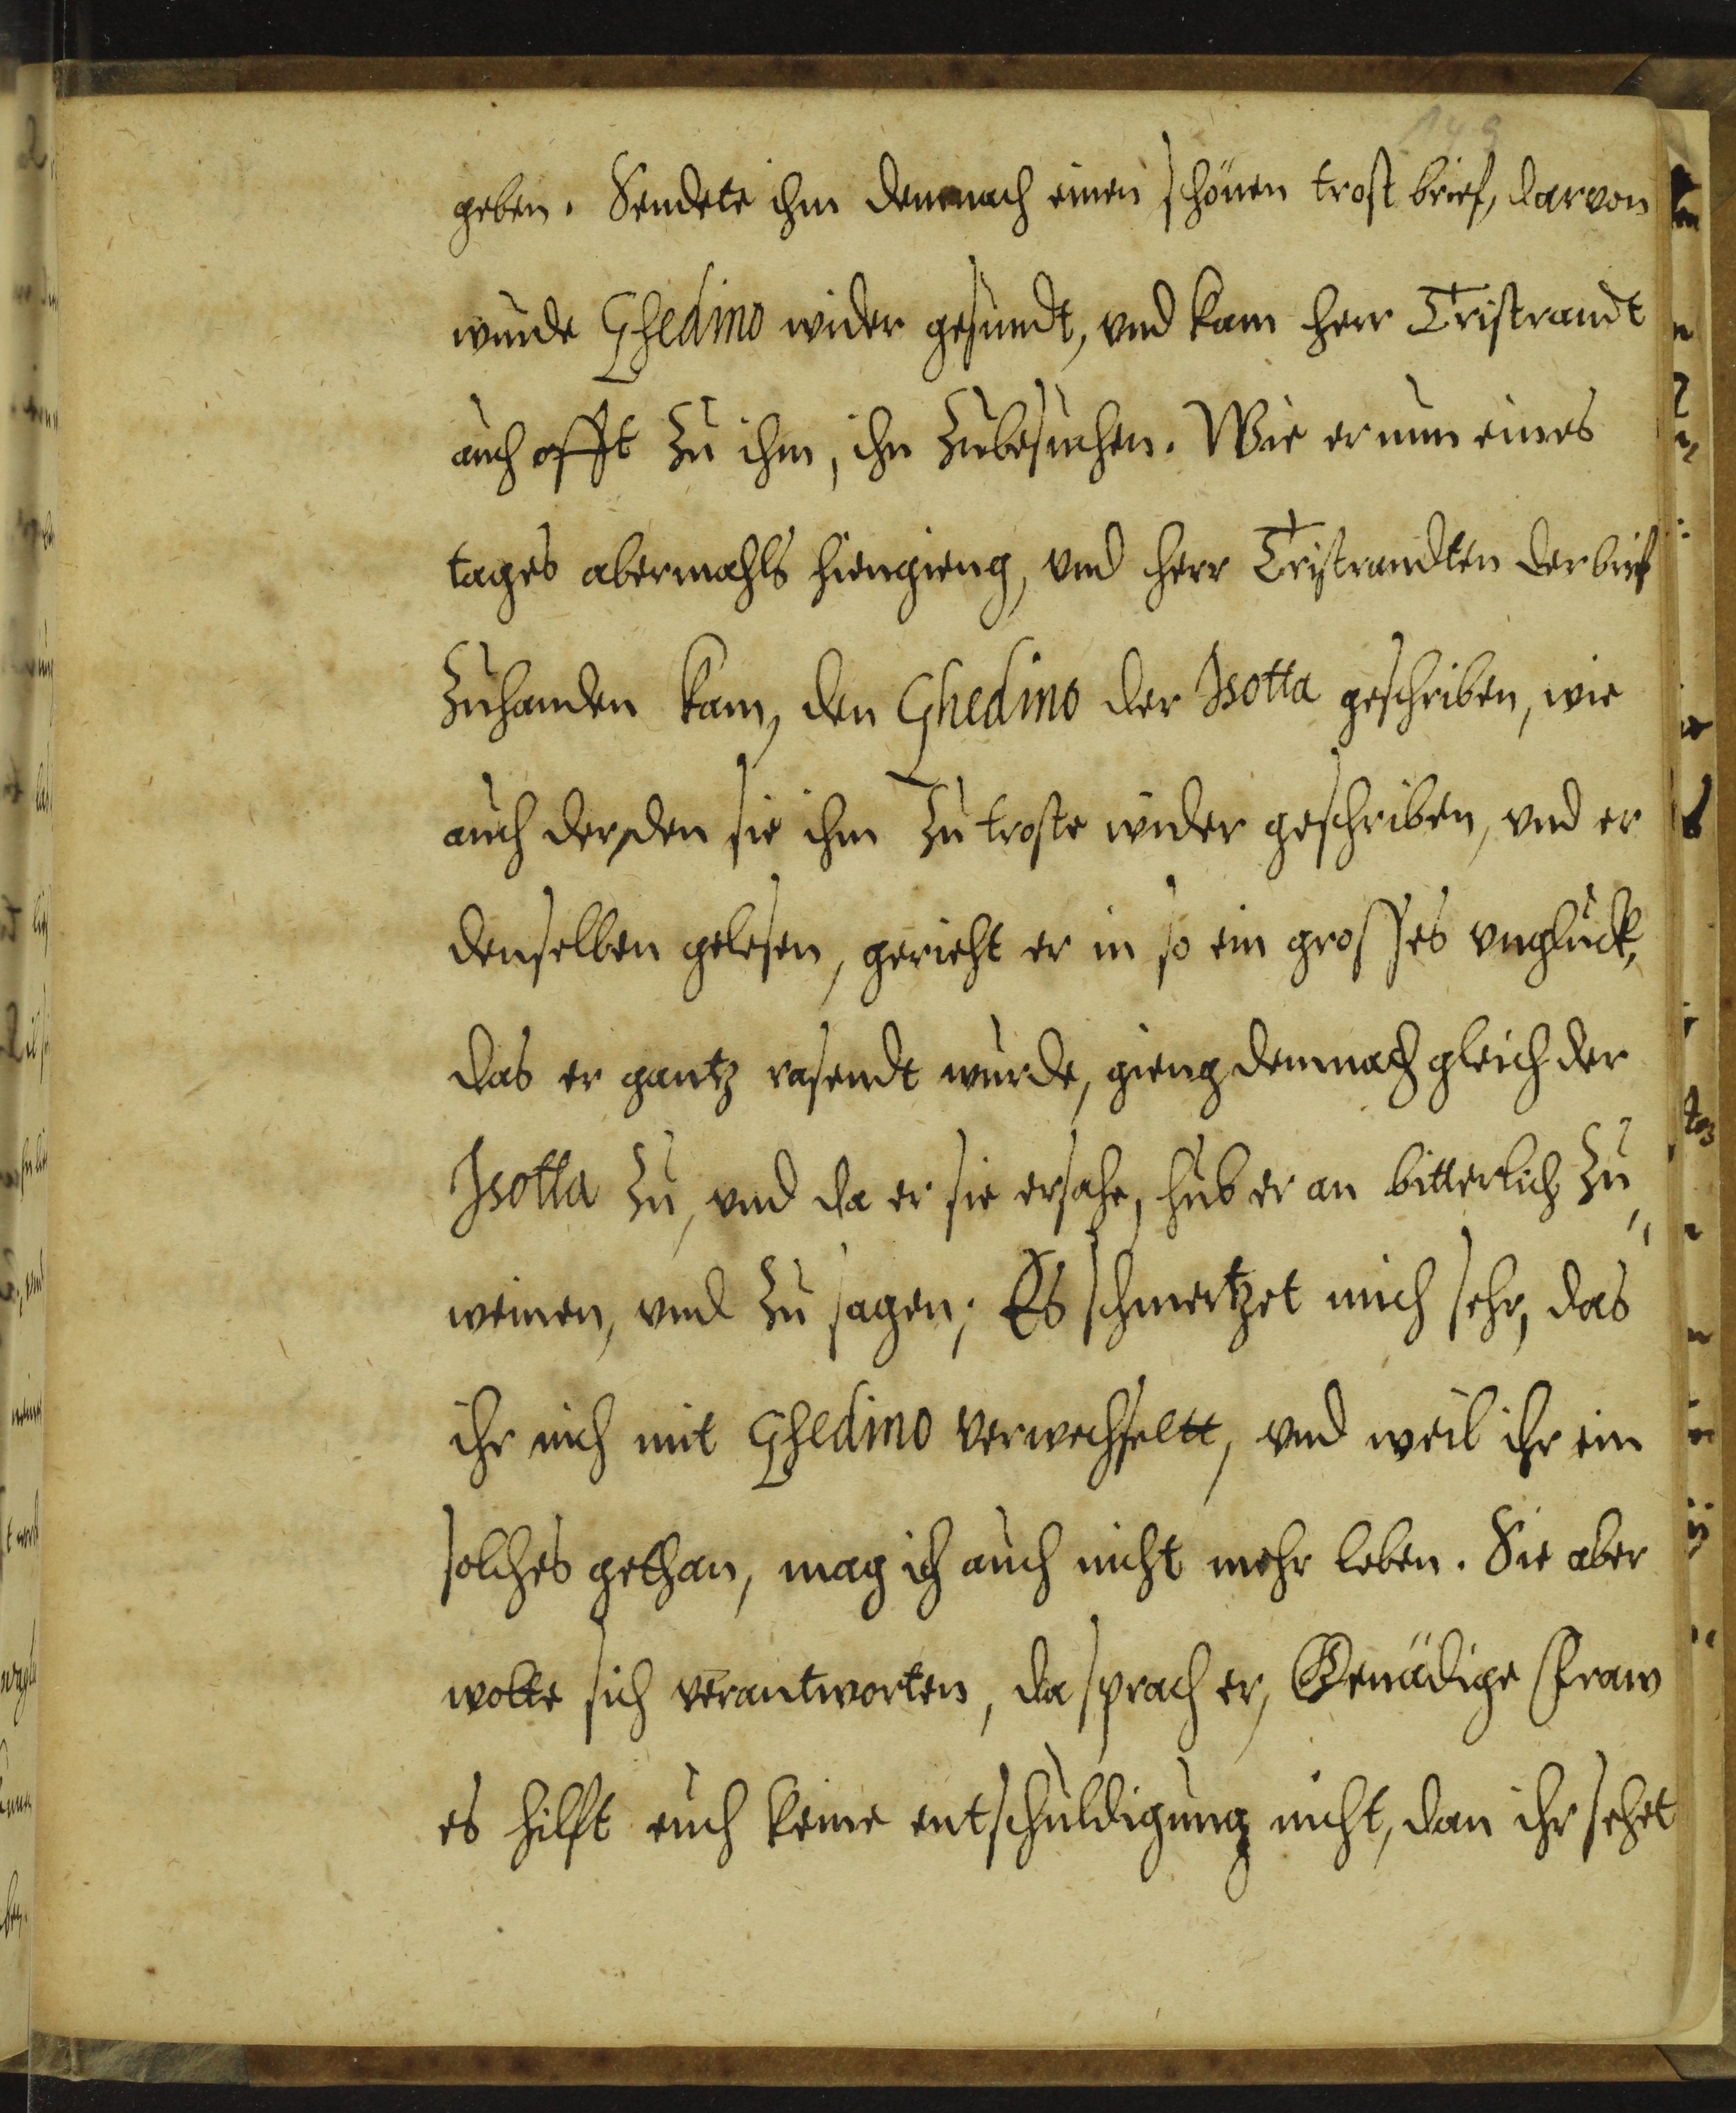 149
geben. Sendete ihm demnach einen schönen trost brief, darvon
wurde Ghedino wider gesundt, vnd kam herr Tristrandt
auch offt zu ihm, ihn zubesuchen. Wie er nun eines
tages abermahls hiengieng, vnd herr Tristrandten der brif
zuhanden kam, den Ghedino der Isotta geschriben, wie
auch der, den sie ihm zu troste wider geschriben, vnd er
denselben gelesen, gerieht er in so ein grosses vnglück,
das er gantz rasendt wurde, gieng demnach gleich der
Isotta zu, vnd da er sie ersahe, hub er an bitterlich zu
weinen, vnd zu sagen; Es schmertzet mich sehr, das
ihr mich mit Ghedino verwechseltt, vnd weil ihr ein
solches gethan, mag ich auch nicht mehr leben. Sie aber
wolte sich verantworten, da sprach er, Genädige Fraw
es hilft euch keine entschuldigung nicht, dan ihr sehet